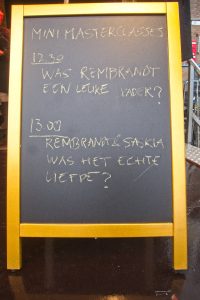 MINI MASTERCLASSES
12.30
WAS REMBRANDT
EEN LEUKE VADER?
13.00
REMBRANDT & SASKIA
WAS HET ECHTE
LIEFDE?